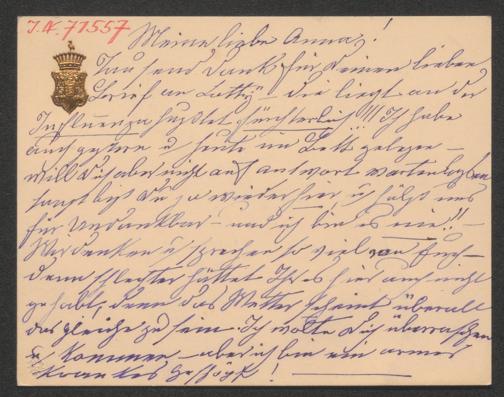 J.N. 71557
Meine liebe Anna!
Tausend Dank für deinen lieben
Brief an Lotty – die liegt an der
Influenza hustet fürchterlich!!! Ich habe
auch gestern u heute im Bett gelegen –
will dich aber nicht auf antwort warten lassen
sonst bist du ja wieder u hälst uns
für undankbar – und ich bin es nie!! –
Wir denken u sprechen so viel von Euch –
denn schlechter hättet Ihr es hier auch nicht
gehabt, denn das Wetter scheint überall
das gleiche zu sein. Ich wollte dich überraschen
u. kommen – aber ich bin ein armes
krankes Geschöpf!